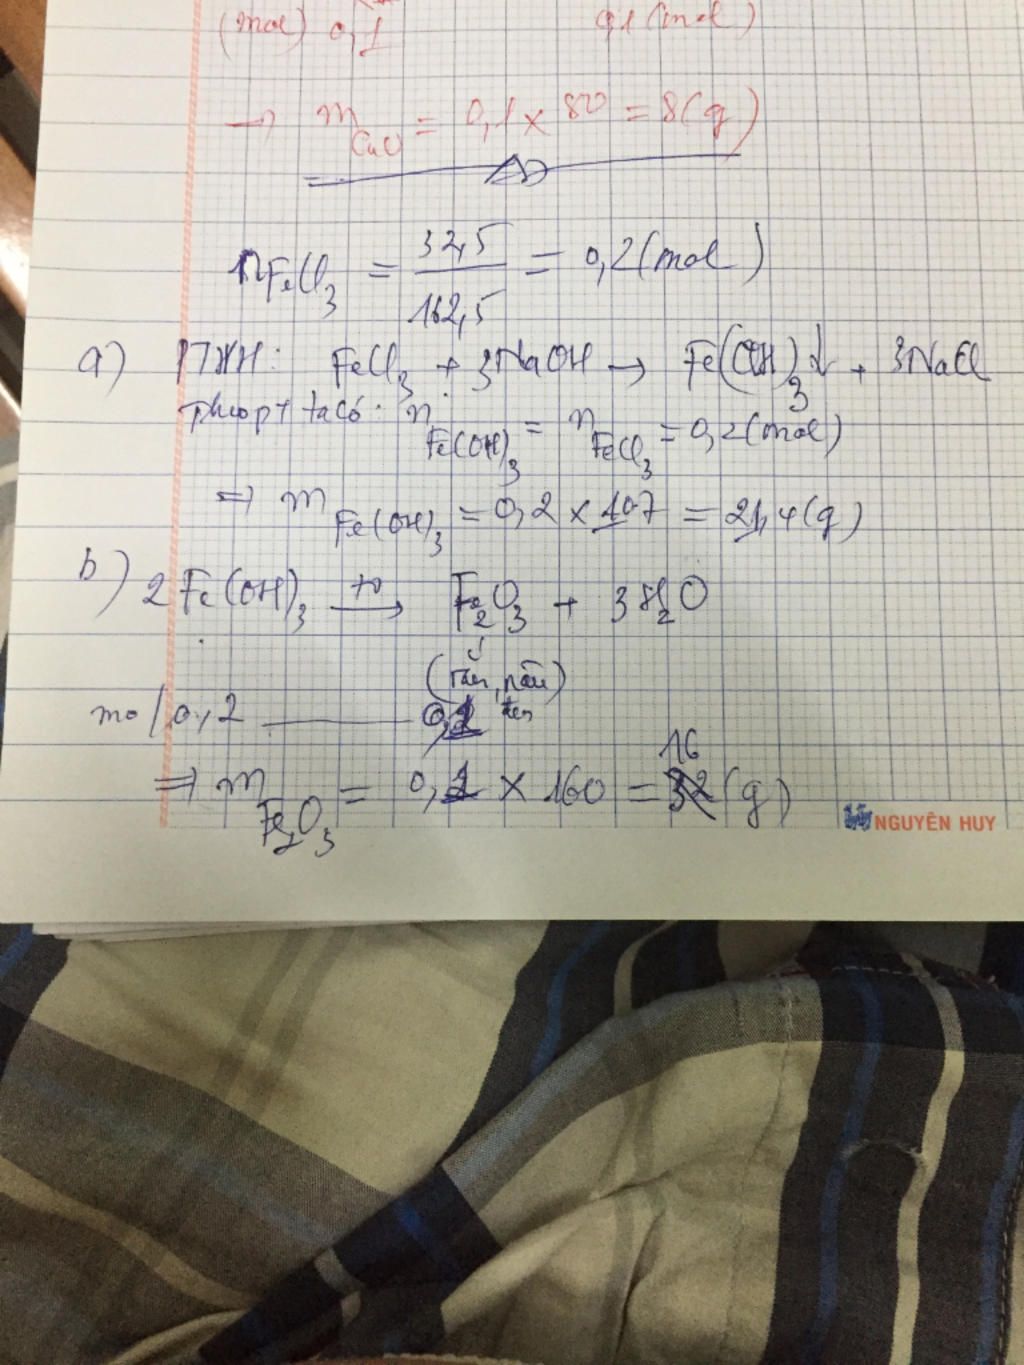 (mol) 0,1 0,1 (mol)
→ m CuO = 0,1 x 80 = 8 (g)
nFeCl3 = 32,5 / 162,5 = 0,2 (mol)
a) PTHH: FeCl3 + 3NaOH → Fe(OH)3↓ + 3NaCl
Theo pt ta có: n Fe(OH)3 = n FeCl3 = 0,2 (mol)
⇒ m Fe(OH)3 = 0,2 x 107 = 21,4 (g)
b) 2Fe(OH)3 →(to) Fe2O3 + 3H2O
(rắn, nâu
đen)
mol 0,2 — 0,1
16
⇒ m Fe2O3 = 0,1 x 160 = 32 (g)
NGUYÊN HUY